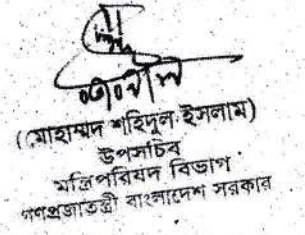 (মোহাম্মদ শহিদুল ইসলাম)
উপসচিব
মন্ত্রিপরিষদ বিভাগ
গণপ্রজাতন্ত্রী বাংলাদেশ সরকার